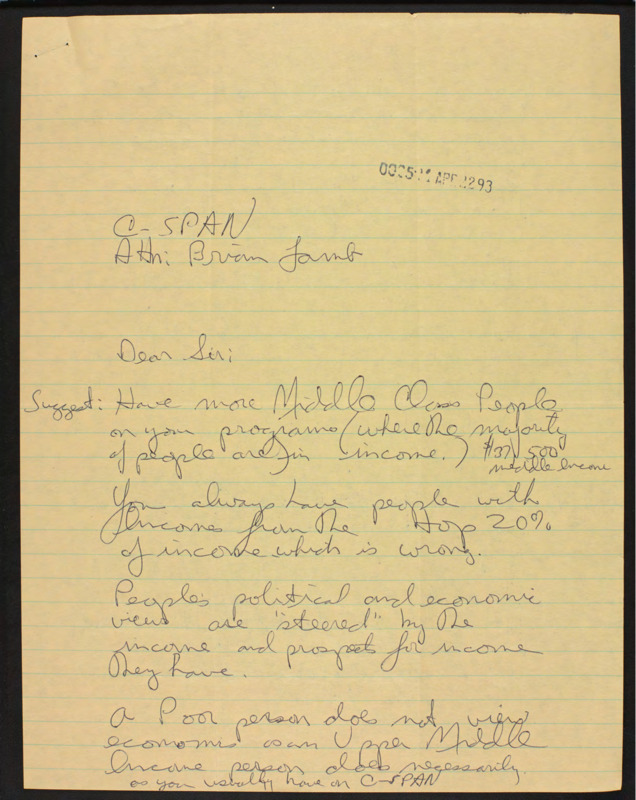 APR 1293
C-SPAN
Attn: Brian Lamb
Dear Sir:
Suggest: Have more Middle Class People
on your programs (where the majority
of people are) in income.) $37,500
middle income
You always have people with
Incomes from the top 20%
of income which is wrong.
People's political and economic
views are "steered" by the
income and prospects for income
they have.
A Poor person does not view
economics as an Upper Middle
Income person does necessarily.
as you usually have on C-SPAN